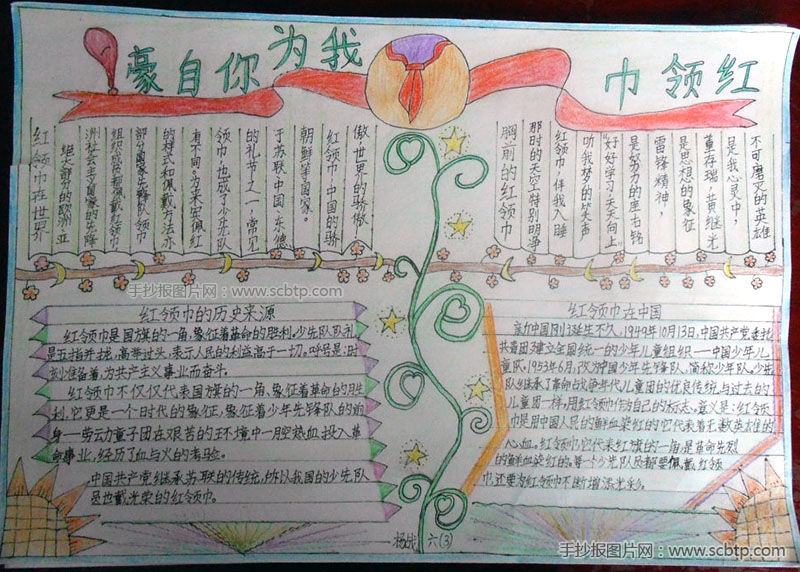 红领巾
我为你自豪
红领巾在世界
绝大部分的欧洲、亚
洲社会主义国家的先锋
组织成员都戴红领巾
部分国家先锋队领巾
的样式和佩戴方法亦
有不同。为来宾佩红
领巾，也成了少先队
的礼节之一，常见
于苏联、中国、东德
朝鲜等国家。
红领巾，中国的骄
傲世界的骄傲
胸前的红领巾
那时的天空特别明净
红领巾，伴我入睡
我梦的笑声
"好好学习，天天向上"
是努力的座右铭
雷锋精神，
是思想的象征
董存瑞，黄继光
是我心灵中，
不可磨灭的英雄
手抄报图片网：www.scbtp.com
红领巾的历史来源
红领巾是国旗的一角，象征着革命的胜利。少先队队礼
是五指并拢，高举过头，表示人民的利益高于一切。呼号是：时
刻准备着，为共产主义事业而奋斗。
红领巾不仅仅代表国旗的一角、象征着革命的胜
利，它更是一个时代的象征，象征着少年先锋队的前
身——劳动童子团在艰苦的环境中一腔热血，投入革
命事业，经历了血与火的考验。
中国共产党继承苏联的传统，所以我国的少先队
员也戴光荣的红领巾。
红领巾在中国
新中国刚诞生不久，1949年10月13日，中国共产党委托
共青团建立全国统一的少年儿童组织——中国少年儿
童队，1953年6月，改为中国少年先锋队，简称少年队。少先
队继承了革命战争年代儿童团的优良传统，与过去的
儿童团一样，用红领巾作为自己的标志。意义是：红领
巾是用中国人民的鲜血染红的它代表着无数英雄的
心血。红领巾，它代表红旗的一角，是革命先烈
的鲜血染红的。每个少先队员都要佩戴红领
巾还要为红领巾不断增添光彩。
六(3)
手抄报图片网：www.scbtp.com